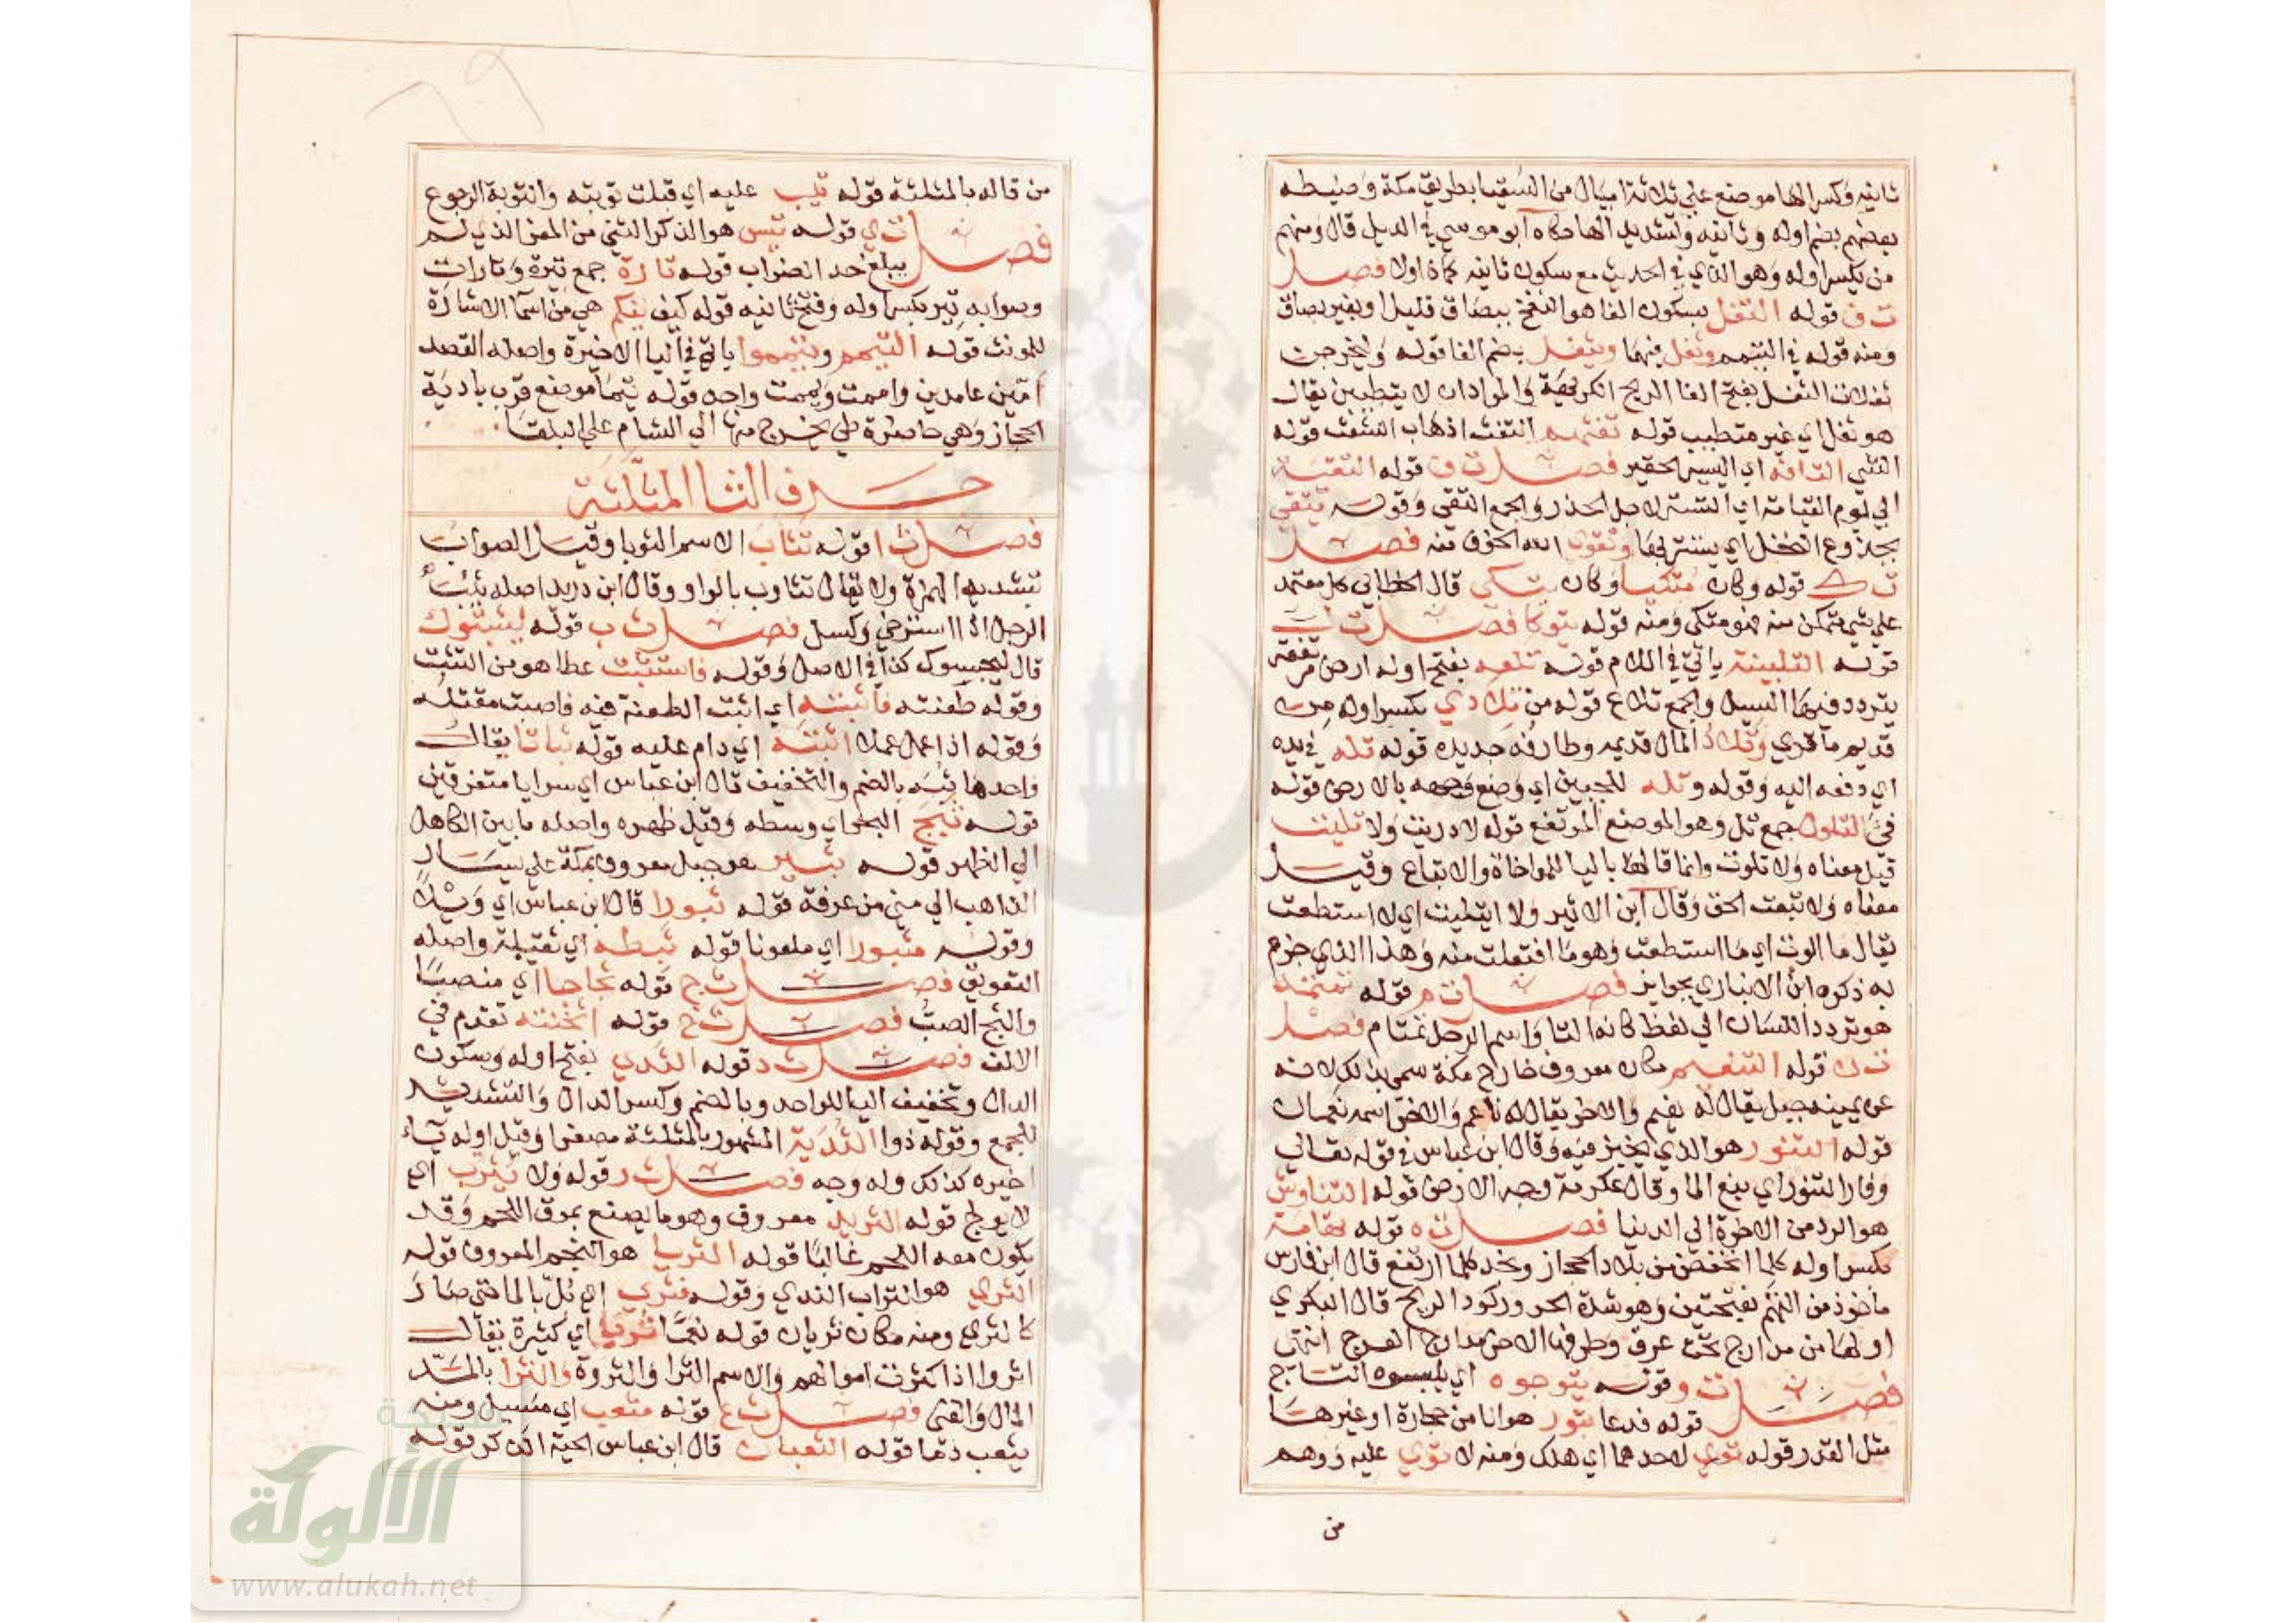 ثانيه وكسر الها موضع علي ثلاثة اميال من السقيا بطريق مكة وضبطه
بعضهم بضم اوله وثانيه وتشديد الها حكاه ابو موسي في الديل قال ومنهم
من يكسر اوله وهو الذي في الحديث مع سكون ثانيه كما اولا فصل
ت ف قوله التفل بسكون الفا هو النفخ ببصاق قليل او بغير بصاق
ومنه قوله في التيمم وتفل فيهما ويتفل بضم الفا قوله وليخرجن
تفلات التفل بفتح الفا الريح الكريهة والمراد ان لا يتطيبن يقال
هو تفل اي غير متطيب قوله تفثهم التفث اذهاب الشعث قوله
الشي التافه اي اليسير الحقير فصل ت ق قوله التقية
الي يوم القيامة اي التستر لاجل الحذر والجمع التقي وقوله يتقي
بجذوع النخل اي يستتر بها وتقوي الله الخوف منه فصل
ت ك قوله وكان متكيا وكان يتكي قال الخطابي كل معتمد
علي شي متمكن منه فهو متكي ومنه قوله يتوكا فصل ت ل
قوله التلبينة ياتي في اللام قوله تلعه بفتح اوله ارض مرتفعة
يتردد فيها السيل والجمع تلاع قوله من تلادي بكسر اوله من
قديم ما قري وتلاد المال قديمه وطارفه جديده قوله تله في يده
اي دفعه اليه وقوله وتله للجبين اي وضع وجهه بالارض قوله
في التلول جمع تل وهو الموضع المرتفع قوله لا دريت ولا تليت
قيل معناه ولا تلوت وانما قالها باليا للمواخاة والاتباع وقيل
معناه ولا تبعت الحق وقال ابن الاثير ولا ايتليت اي لا استطعت
يقال ما الوت اي ما استطعت وهو ما افتعلت منه وهذا الذي جزم
به ذكره ابن الانباري بجوابز فصل ت م قوله تمتمة
هو تردد اللسان الي لفظ كانه التا واسم الرجل تمتام فصل
ت ن قوله التنعيم مكان معروف خارج مكة سمي بذلك لانه
عن يمينه جبل يقال له نعيم والاخر يقال له ناعم والاخر اسمه نعمان
قوله التنور هو الذي يخبز فيه وقال ابن عباس في قوله تعالي
وفار التنور اي نبع الما وقال عكرمة وجه الارض قوله التناوش
هو الرد من الاخرة الي الدنيا فصل ت ه قوله تهامة
بكسر اوله كلما انخفض من بلاد الحجاز ونجد كلما ارتفع قال ابن فارس
ماخوذ من التهم بفتحتين وهو شدة الحر وركود الريح قال البكري
اولها من مدارج تحت عرق وطرفها الاخر مدارج العرج انتهي
فصل ت و وقوله يتوجوه اي يلبسوه التاج
قوله فدعا بتور هو انا من حجارة او غيرها
مثل القدر قوله توي لاحدهما اي هلك ومنه لا توي عليه ووهم
من
من قاله بالمثلثة قوله تيب عليه اي قبلت توبته والتوبة الرجوع
فصل ت ي قوله تيس هو الذكر الثني من المعز الذي لم
يبلغ حد الضراب قوله تارة جمع تيرة وتارات
وصوابه تير بكسر اوله وفتح ثانيه قوله كيف تيكم هي من اسما الاشارة
للمونث قوله التيمم ويتيمموا ياتي في اليا الاخيرة واصله القصد
امين عامدين واممت ويممت واحد قوله تيما موضع قرب بادية
الحجاز وهي حاضرة طي يخرج منها الي الشام علي البلقا
حرف الثا المثلثة
فصل ث ا قوله تثاب الاسم الثوبا وقيل الصواب
تشديد الهمزة ولا يقال تثاوب بالواو وقال ابن دريد اصله ثئب
الرجل اذا استرخي وكسل فصل ث ب قوله ليثبتوك
قال ليحبسوك كذا في الاصل وقوله فاستثبت عطا هو من التثبت
وقوله طعنته فاثبته اي اثبت الطعنة فيه فاصبت مقتله
وقوله اذا عمل عملا اثبته اي دام عليه قوله ثباتا يقال
واحدها ثبة بالضم والتخفيف قال ابن عباس اي سرايا متفرقين
قوله ثبج البحر اي وسطه وقيل ظهره واصله ما بين الكاهل
الي الظهر قوله بثبير هو جبل معروف بمكة علي يسار
الذاهب الي مني من عرفة قوله ثبورا قال ابن عباس اي ويلا
وقوله مثبورا اي ملعونا قوله ثبطه اي ثقيلة واصله
التعويق فصل ث ج قوله ثجاجا اي منصبا
والثج الصب فصل ث خ قوله اثخنته تقدم في
الالف فصل ث د قوله الثدي بفتح اوله وسكون
الدال وتخفيف اليا للواحد وبالضم وكسر الدال والتشديد
للجمع وقوله ذوا الثدية المشهور بالمثلثة مصغرا وقيل اوله ياء
اخيره كذلك وله وجه فصل ث ر قوله ولا يثرب اي
لا يوبخ قوله الثريد معروف وهو ما يصنع بمرق اللحم وقد
يكون معه اللحم غالبا قوله الثريا هو النجم المعروف قوله
الثري هو التراب الندي وقوله فثري اي بل بالما حتي صار
كالثري ومنه مكان ثريان قوله نعما ثريا اي كثيرة يقال
اثروا اذا كثرت اموالهم والاسم الثرا والثروة والثرا بالمد
المال والغني فصل ث ع قوله مثعب اي مسيل ومنه
يثعب دما قوله الثعبان قال ابن عباس الحية الذكر قوله
شبكة
الألوكة
www.alukah.net